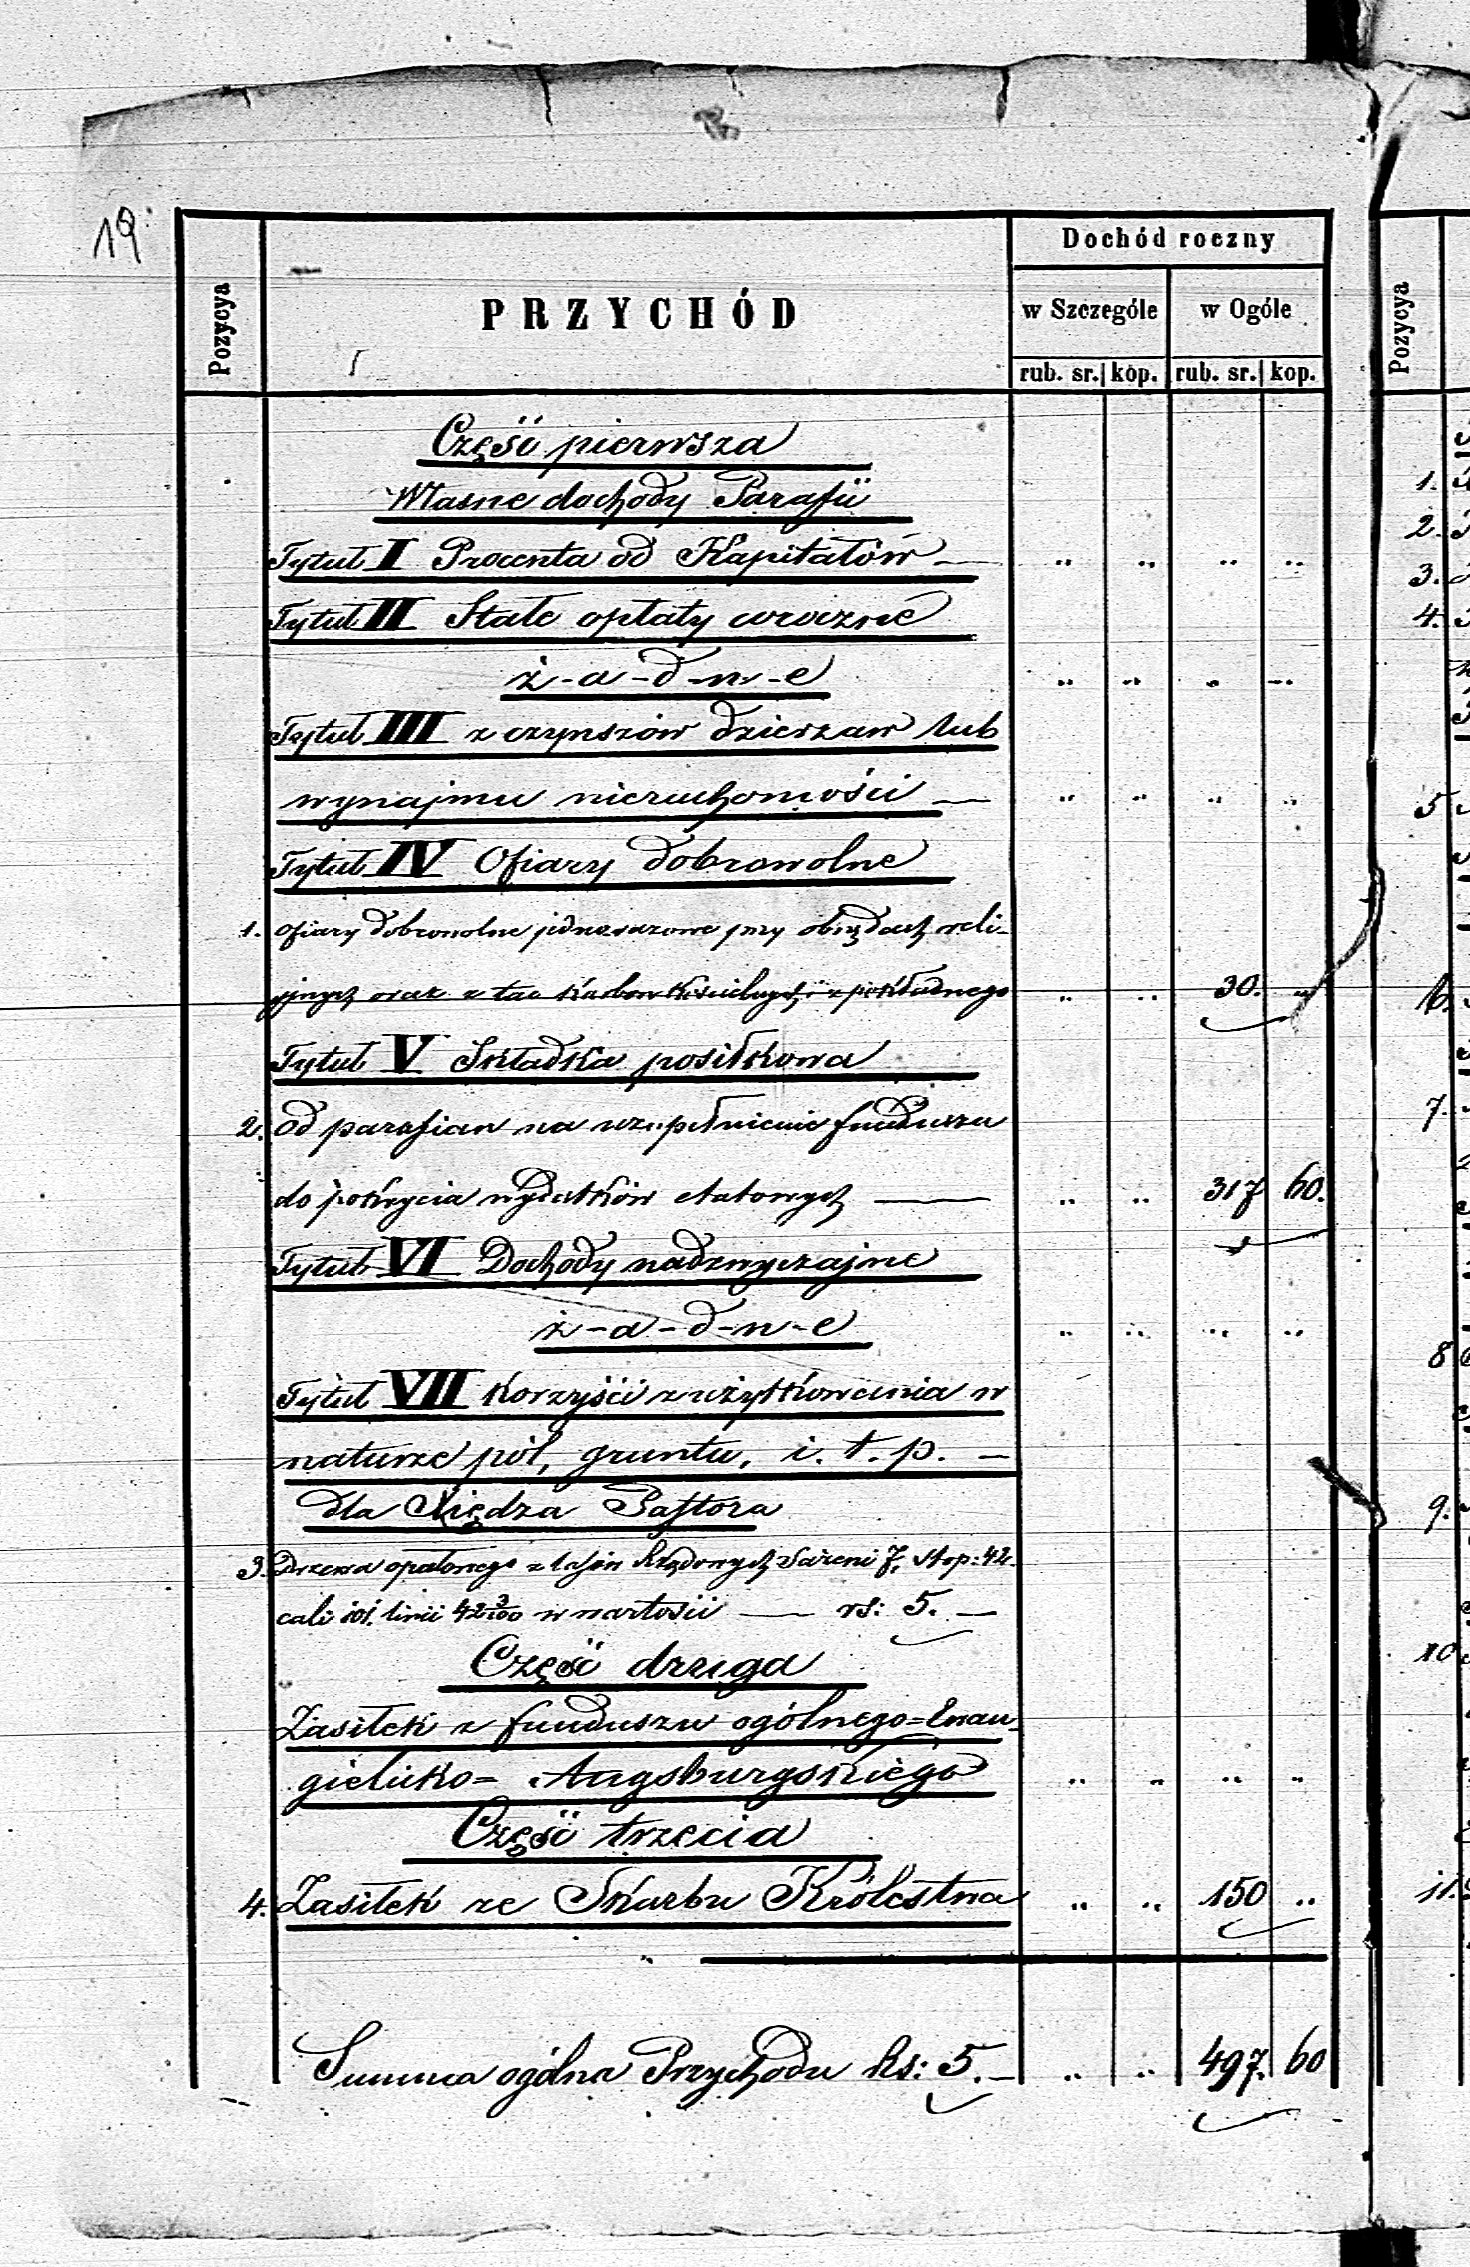 19.
Pozycya
PRZYCHÓD
Dochód roczny
w Szczególe w Ogóle
rub. sr. kop. rub. sr. kop.
Pozycya
Część pierwsza
Własne dochody Parafii
Tytuł I Procenta od Kapitałów — " " " "
Tytuł II Stałe opłaty coroczne
ż-a-d-n-e " " " "
Tytuł III z czynszów dzierzaw lub
wynajmu nieruchomości — " " " "
Tytuł IV Ofiary dobrowolne
1. Ofiary dobrowolne jednorazowe przy obrzędach reli-
gijnych oraz z tac Karbon Kościelnych i z pokładnego " " 30. "
Tytuł V Składka posiłkowa
2. od parafian na uzupełnienie funduszu
do pokrycia wydatków etatowych — " " 317 60.
Tytuł VI Dochody nadzwyczajne
ż-a-d-n-e " " " "
Tytuł VII Korzyści z użytkowania w
naturze pól, gruntu, i. t. p. —
dla Xiędza Pastora
3. Drzewa opałowego z lasów Rządowych Sażeni 7, stop: 42.
cali 101. linii 42 3/100 w wartości — rs: 5. —
Część druga
Zasiłek z funduszu ogólnego=Ewan-
gielicko= Augsburgskiego " " " "
Część trzecia
4. Zasiłek ze Skarbu Królestwa " " 150 "
Summa ogólna Przychodu Rs: 5. — " " 497. 60
1.
2.
3.
4.
5
6.
7.
8
9.
10
11.